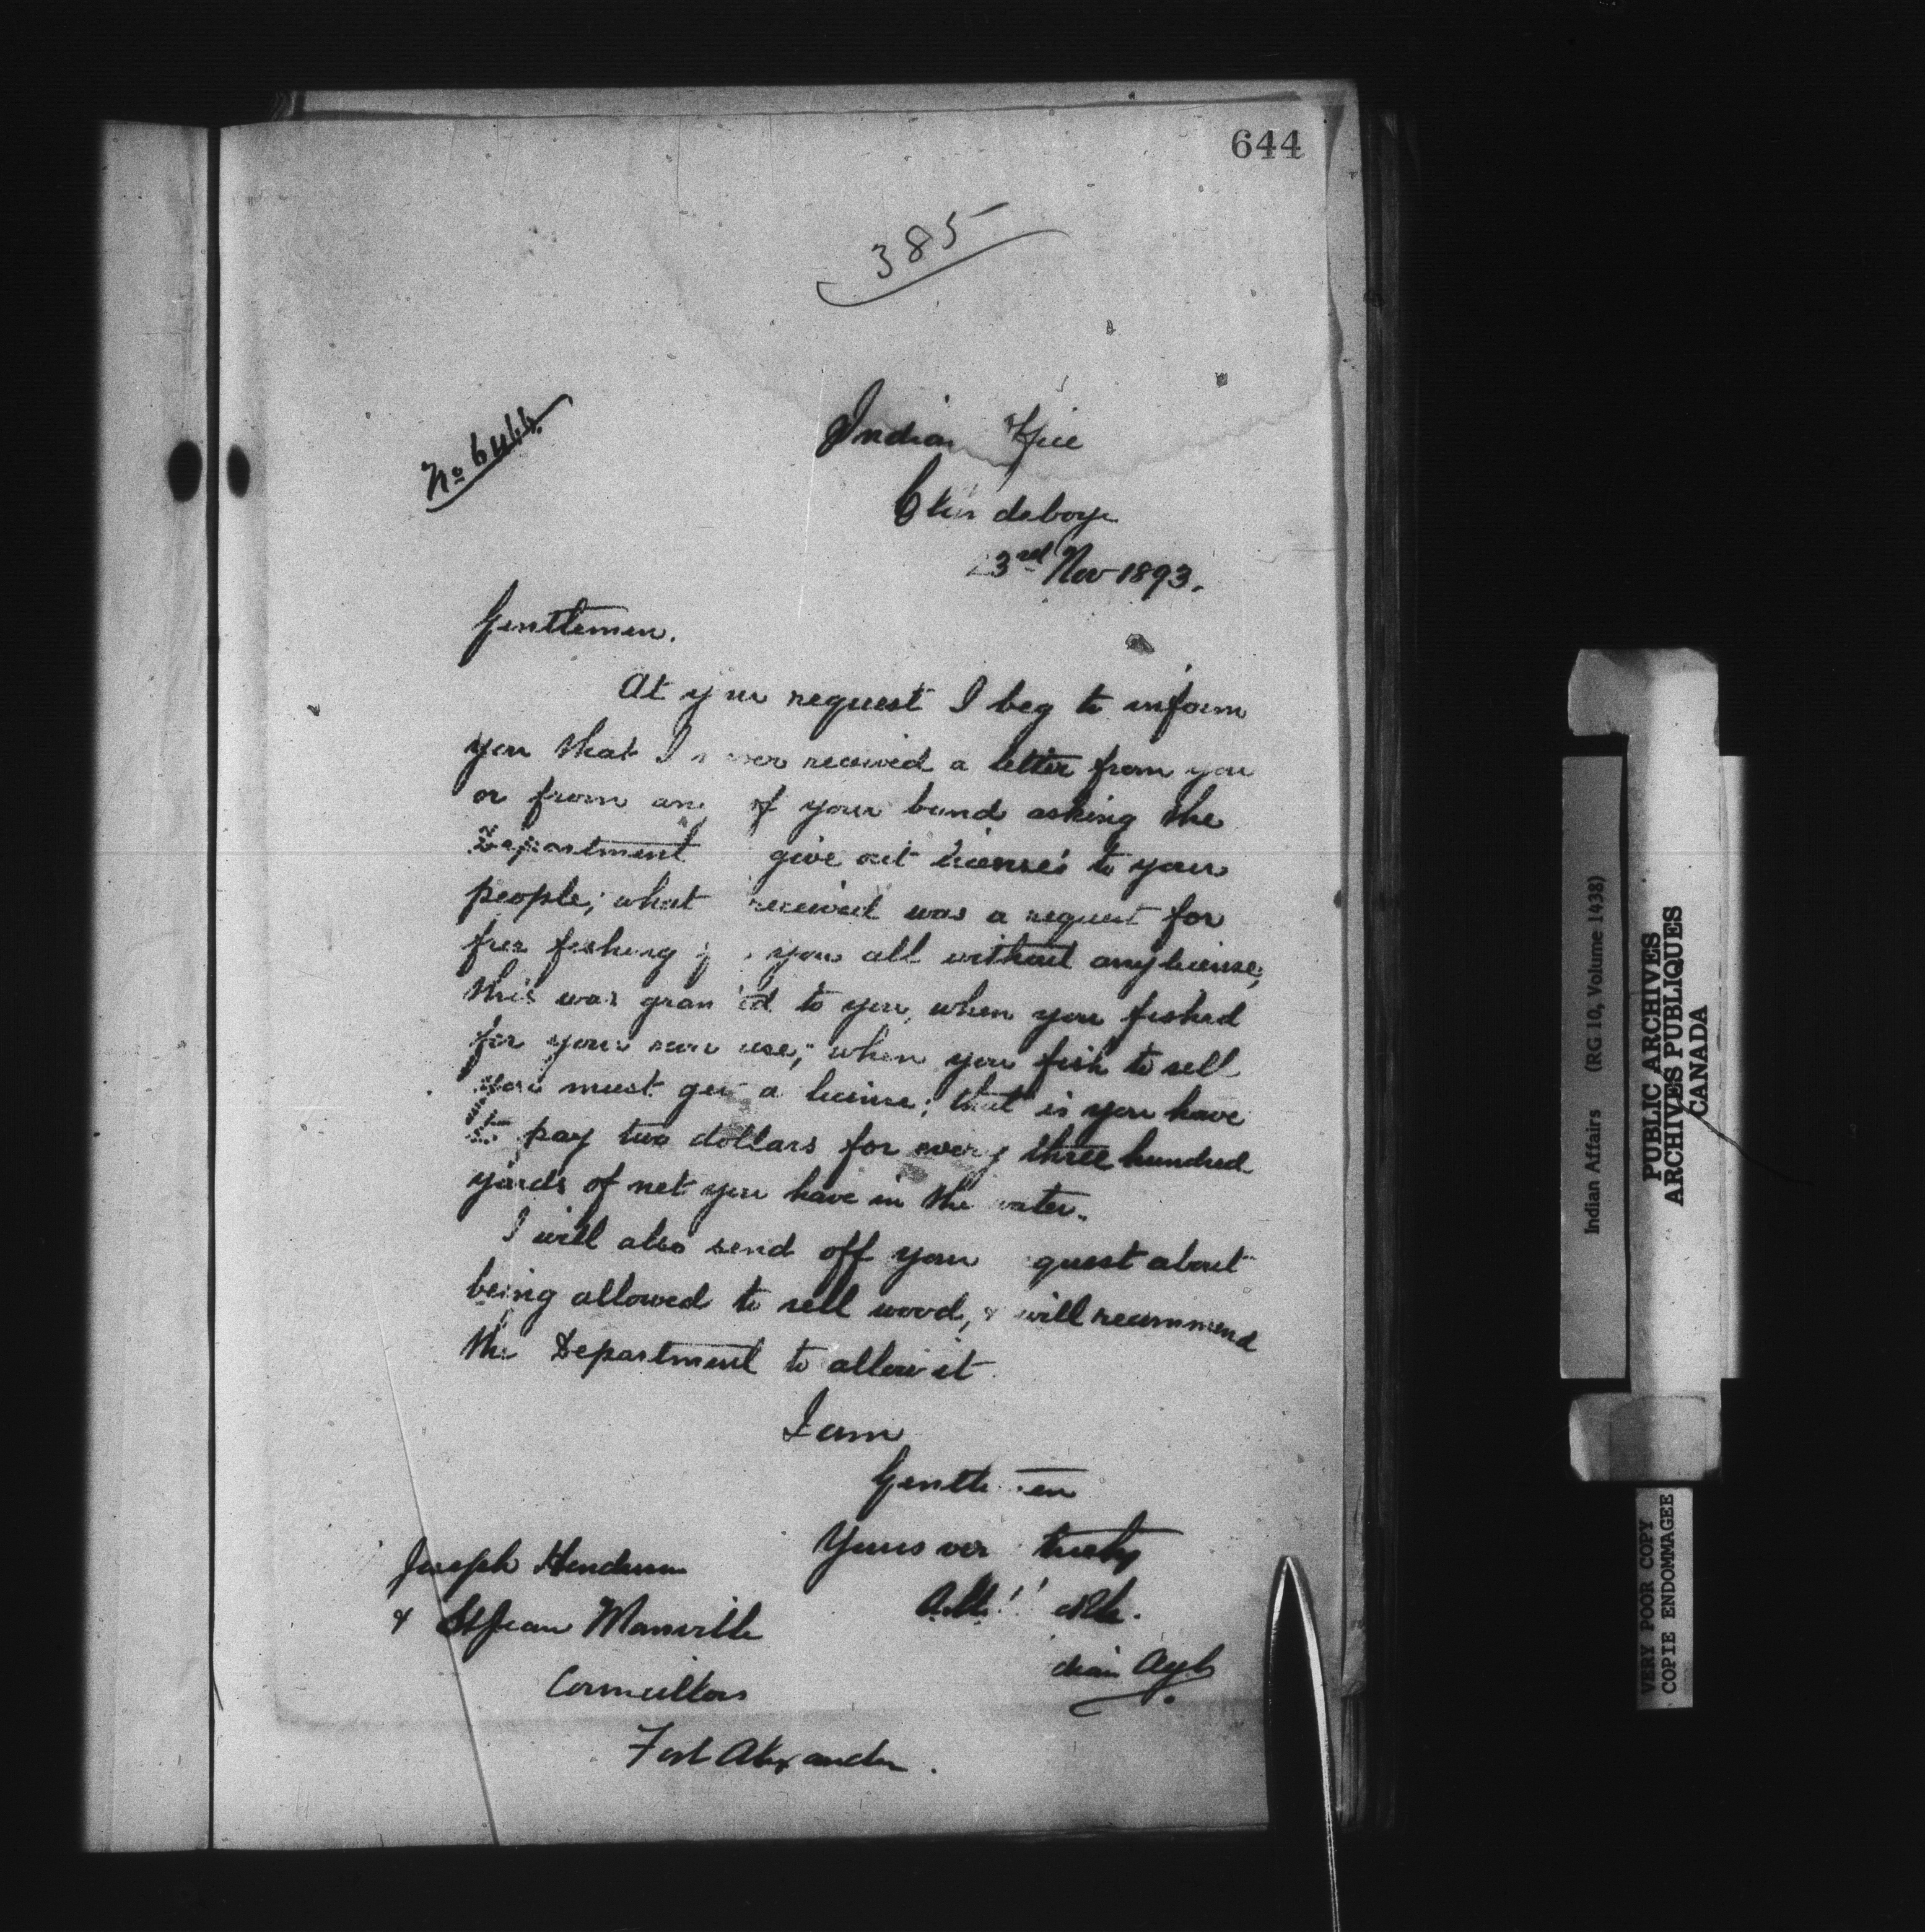 644
385
No 6444
Indian Office
Clandeboye
23rd Nov 1893.
Gentlemen.
At your request I beg to inform
you that I never received a letter from you
or from any of your band asking the
Department give out license's to your
people; what received was a request for
free fishing you all without any license,
this was granted to you, when you fished
for your own use; when you fish to sell
you must get a license; that is you have
to pay two dollars for every three hundred
yards of net you have in the water.
I will also send off your quest about
being allowed to sell wood, & will recommend
the Department to allow it
I am
Gentlemen
Yours very truly
dian Agt
Joseph Henderson
& St Jean Manville
Councillors
Fort Alexander.
Indian Affairs (RG 10, Volume 1438)
PUBLIC ARCHIVES
ARCHIVES PUBLIQUES
CANADA
VERY POOR COPY
COPIE ENDOMMAGEE